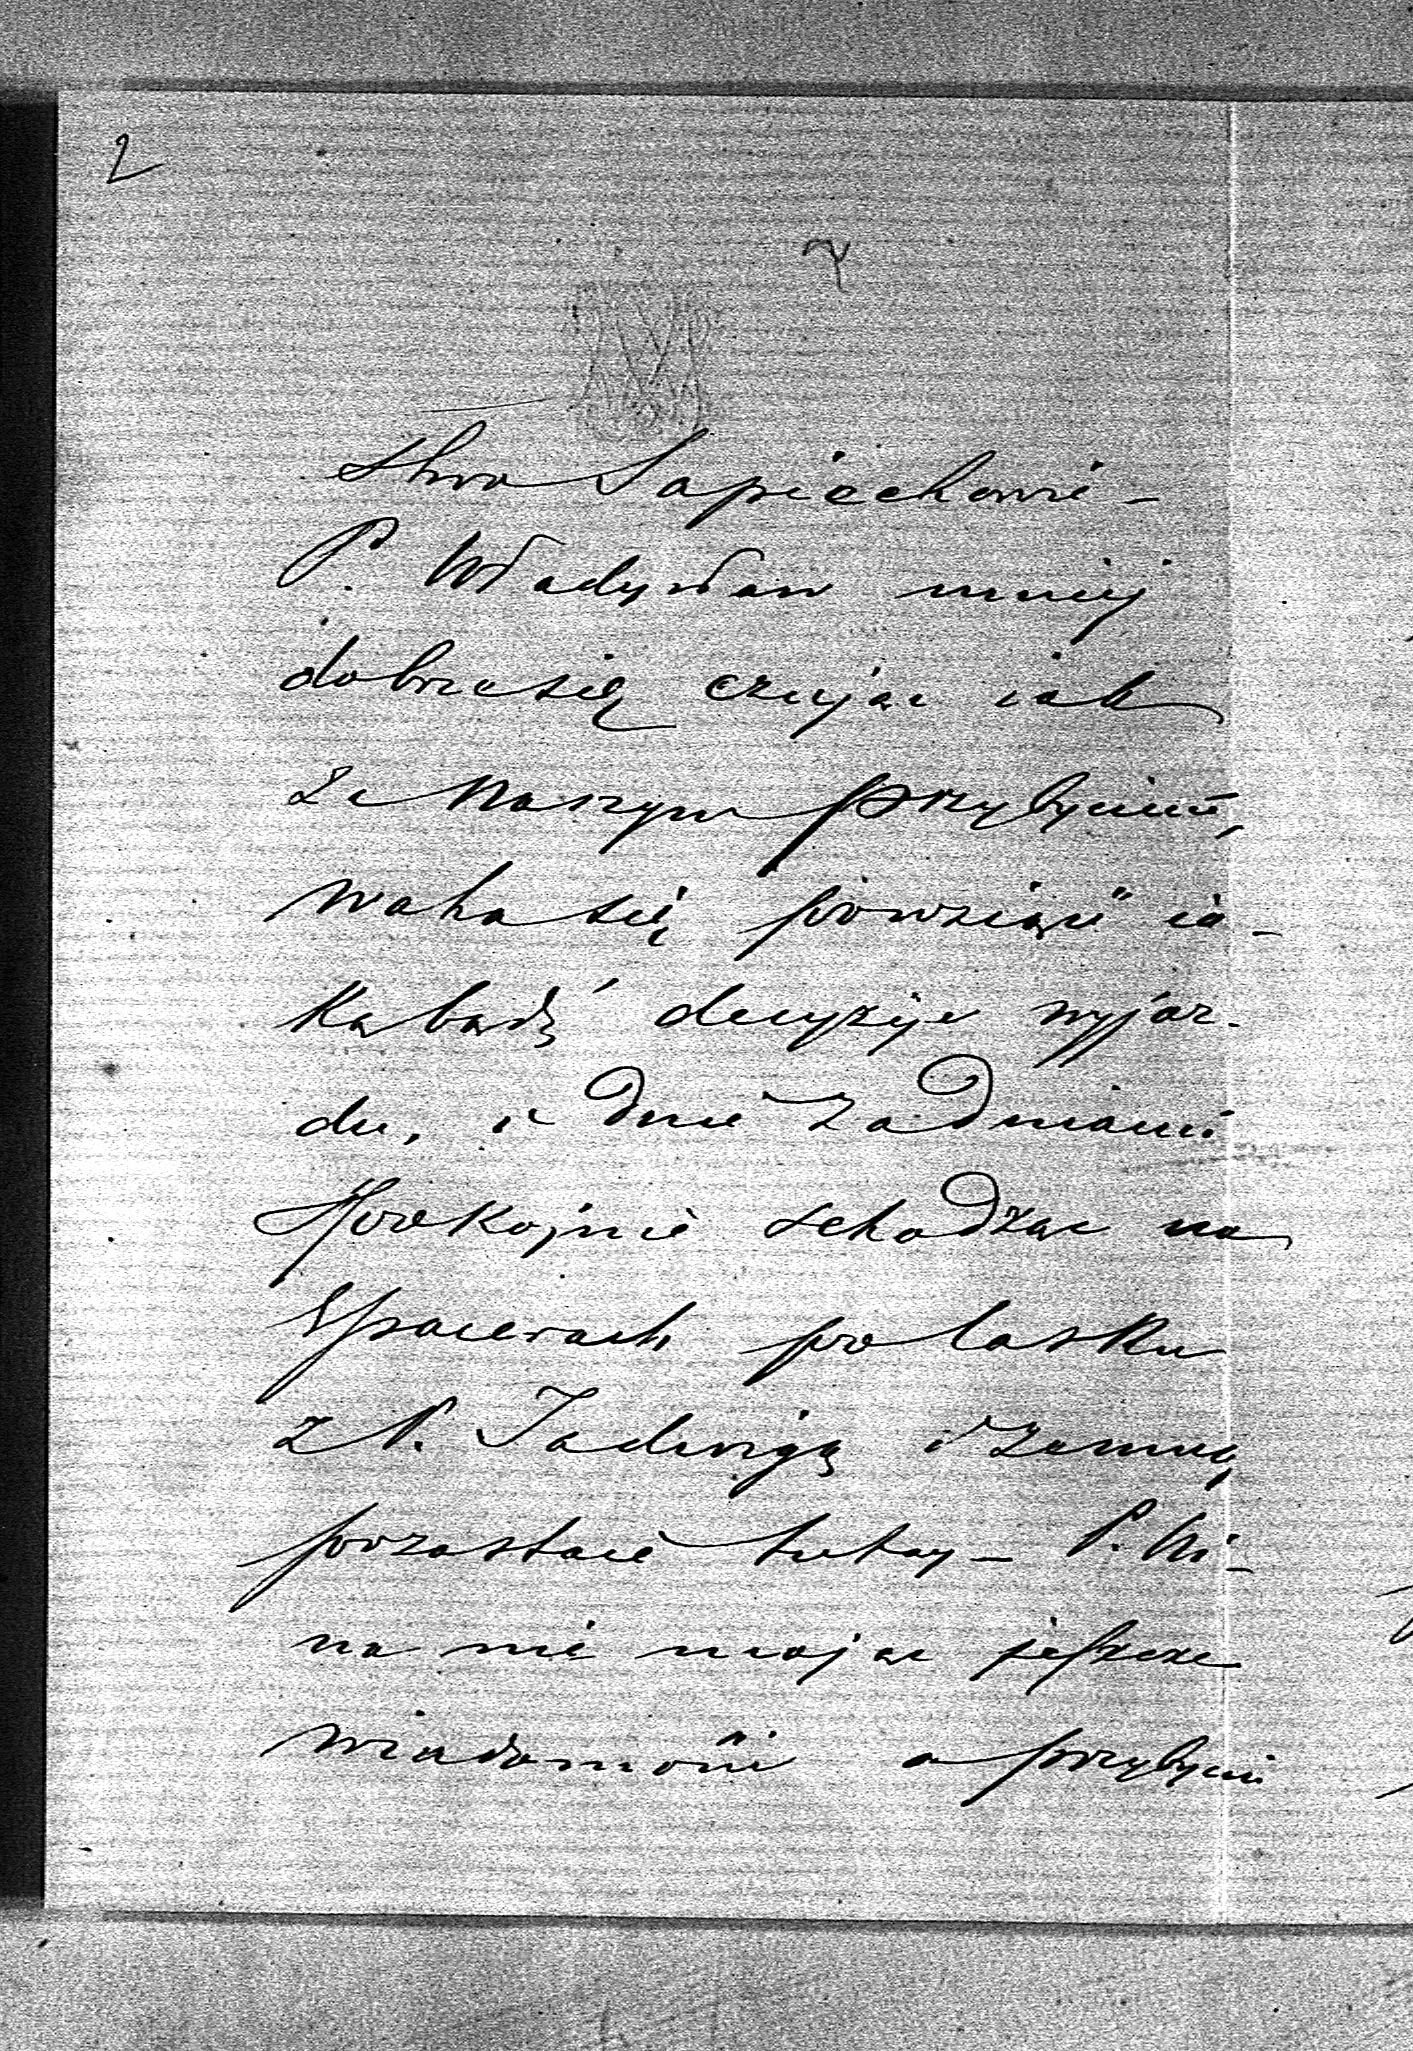 2
stwo Sapiechowie –
P. Władysław mniej
dobrze się czując iak
za naszym przybyciem,
waha się powziąść ia-
kąbądź decyzyje wyjaz-
du, i dnie za dniami
spokojnie schodząc na
spacerach po lasku
z P. Jadwigą i zemną
pozostaie tutay – P. Ni-
na nie mając jeszcze
wiadomości o przybyci